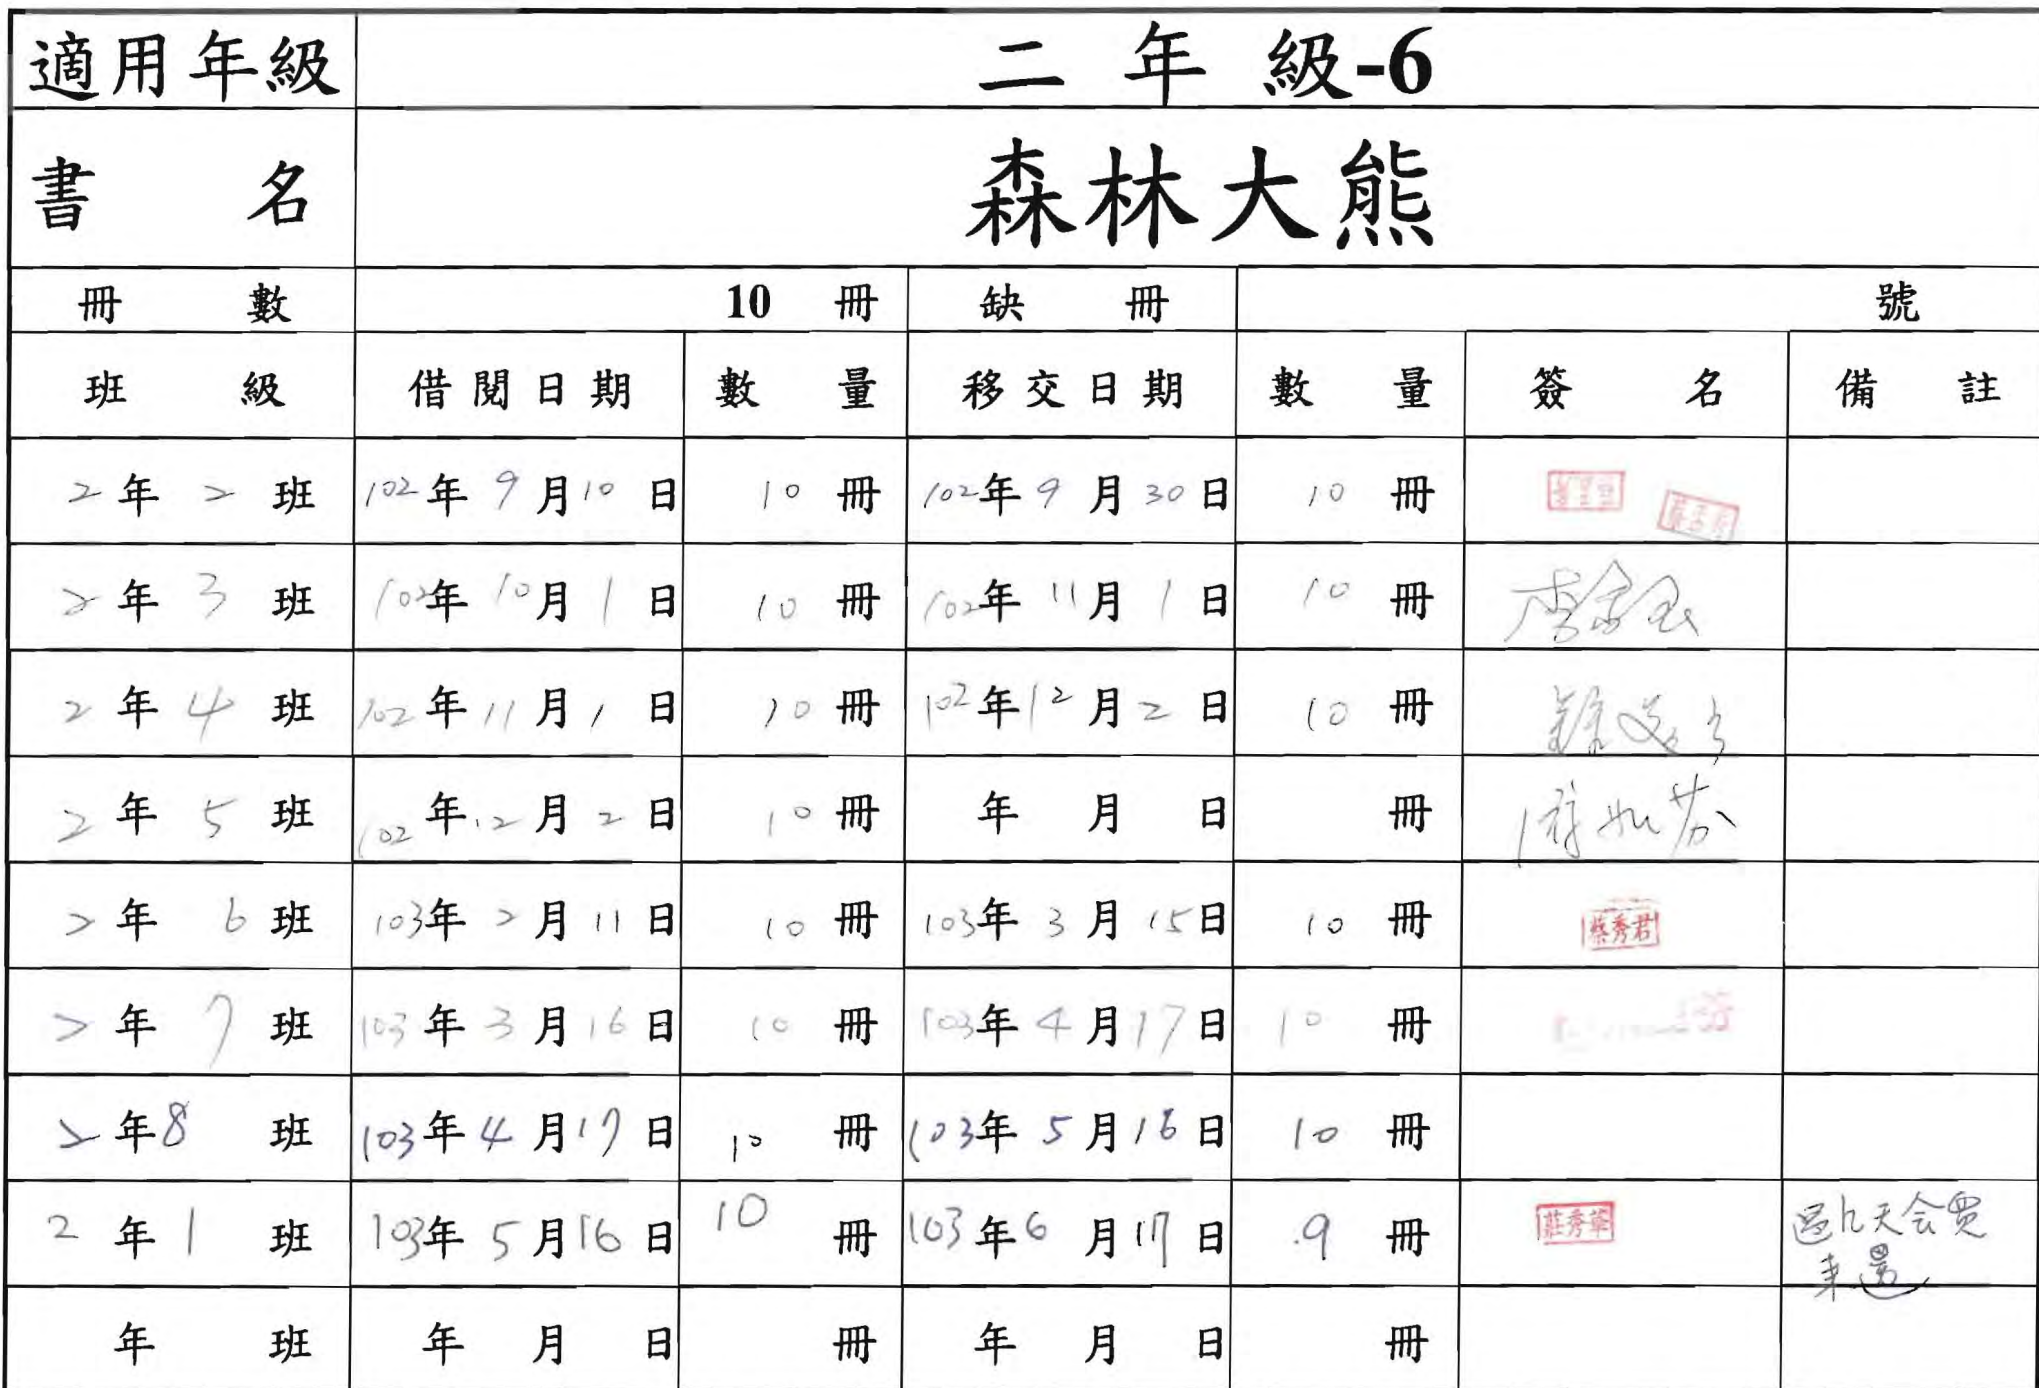 適用年級 二年級-6
書名 森林大熊
冊數 10 冊 缺冊 號
班級 借閱日期 數量 移交日期 數量 簽名 備註
2年2班 102年9月10日 10冊 102年9月30日 10冊
2年3班 102年10月1日 10冊 102年11月1日 10冊
2年4班 102年11月1日 10冊 102年12月2日 10冊
2年5班 102年12月2日 10冊 年月日 冊
2年6班 103年2月11日 10冊 103年3月15日 10冊 蔡秀君
2年7班 103年3月16日 10冊 103年4月17日 10冊
2年8班 103年4月17日 10冊 103年5月16日 10冊
2年1班 103年5月16日 10冊 103年6月17日 9冊 莊秀華 過几天会買
來還
年班 年月日 冊 年月日 冊